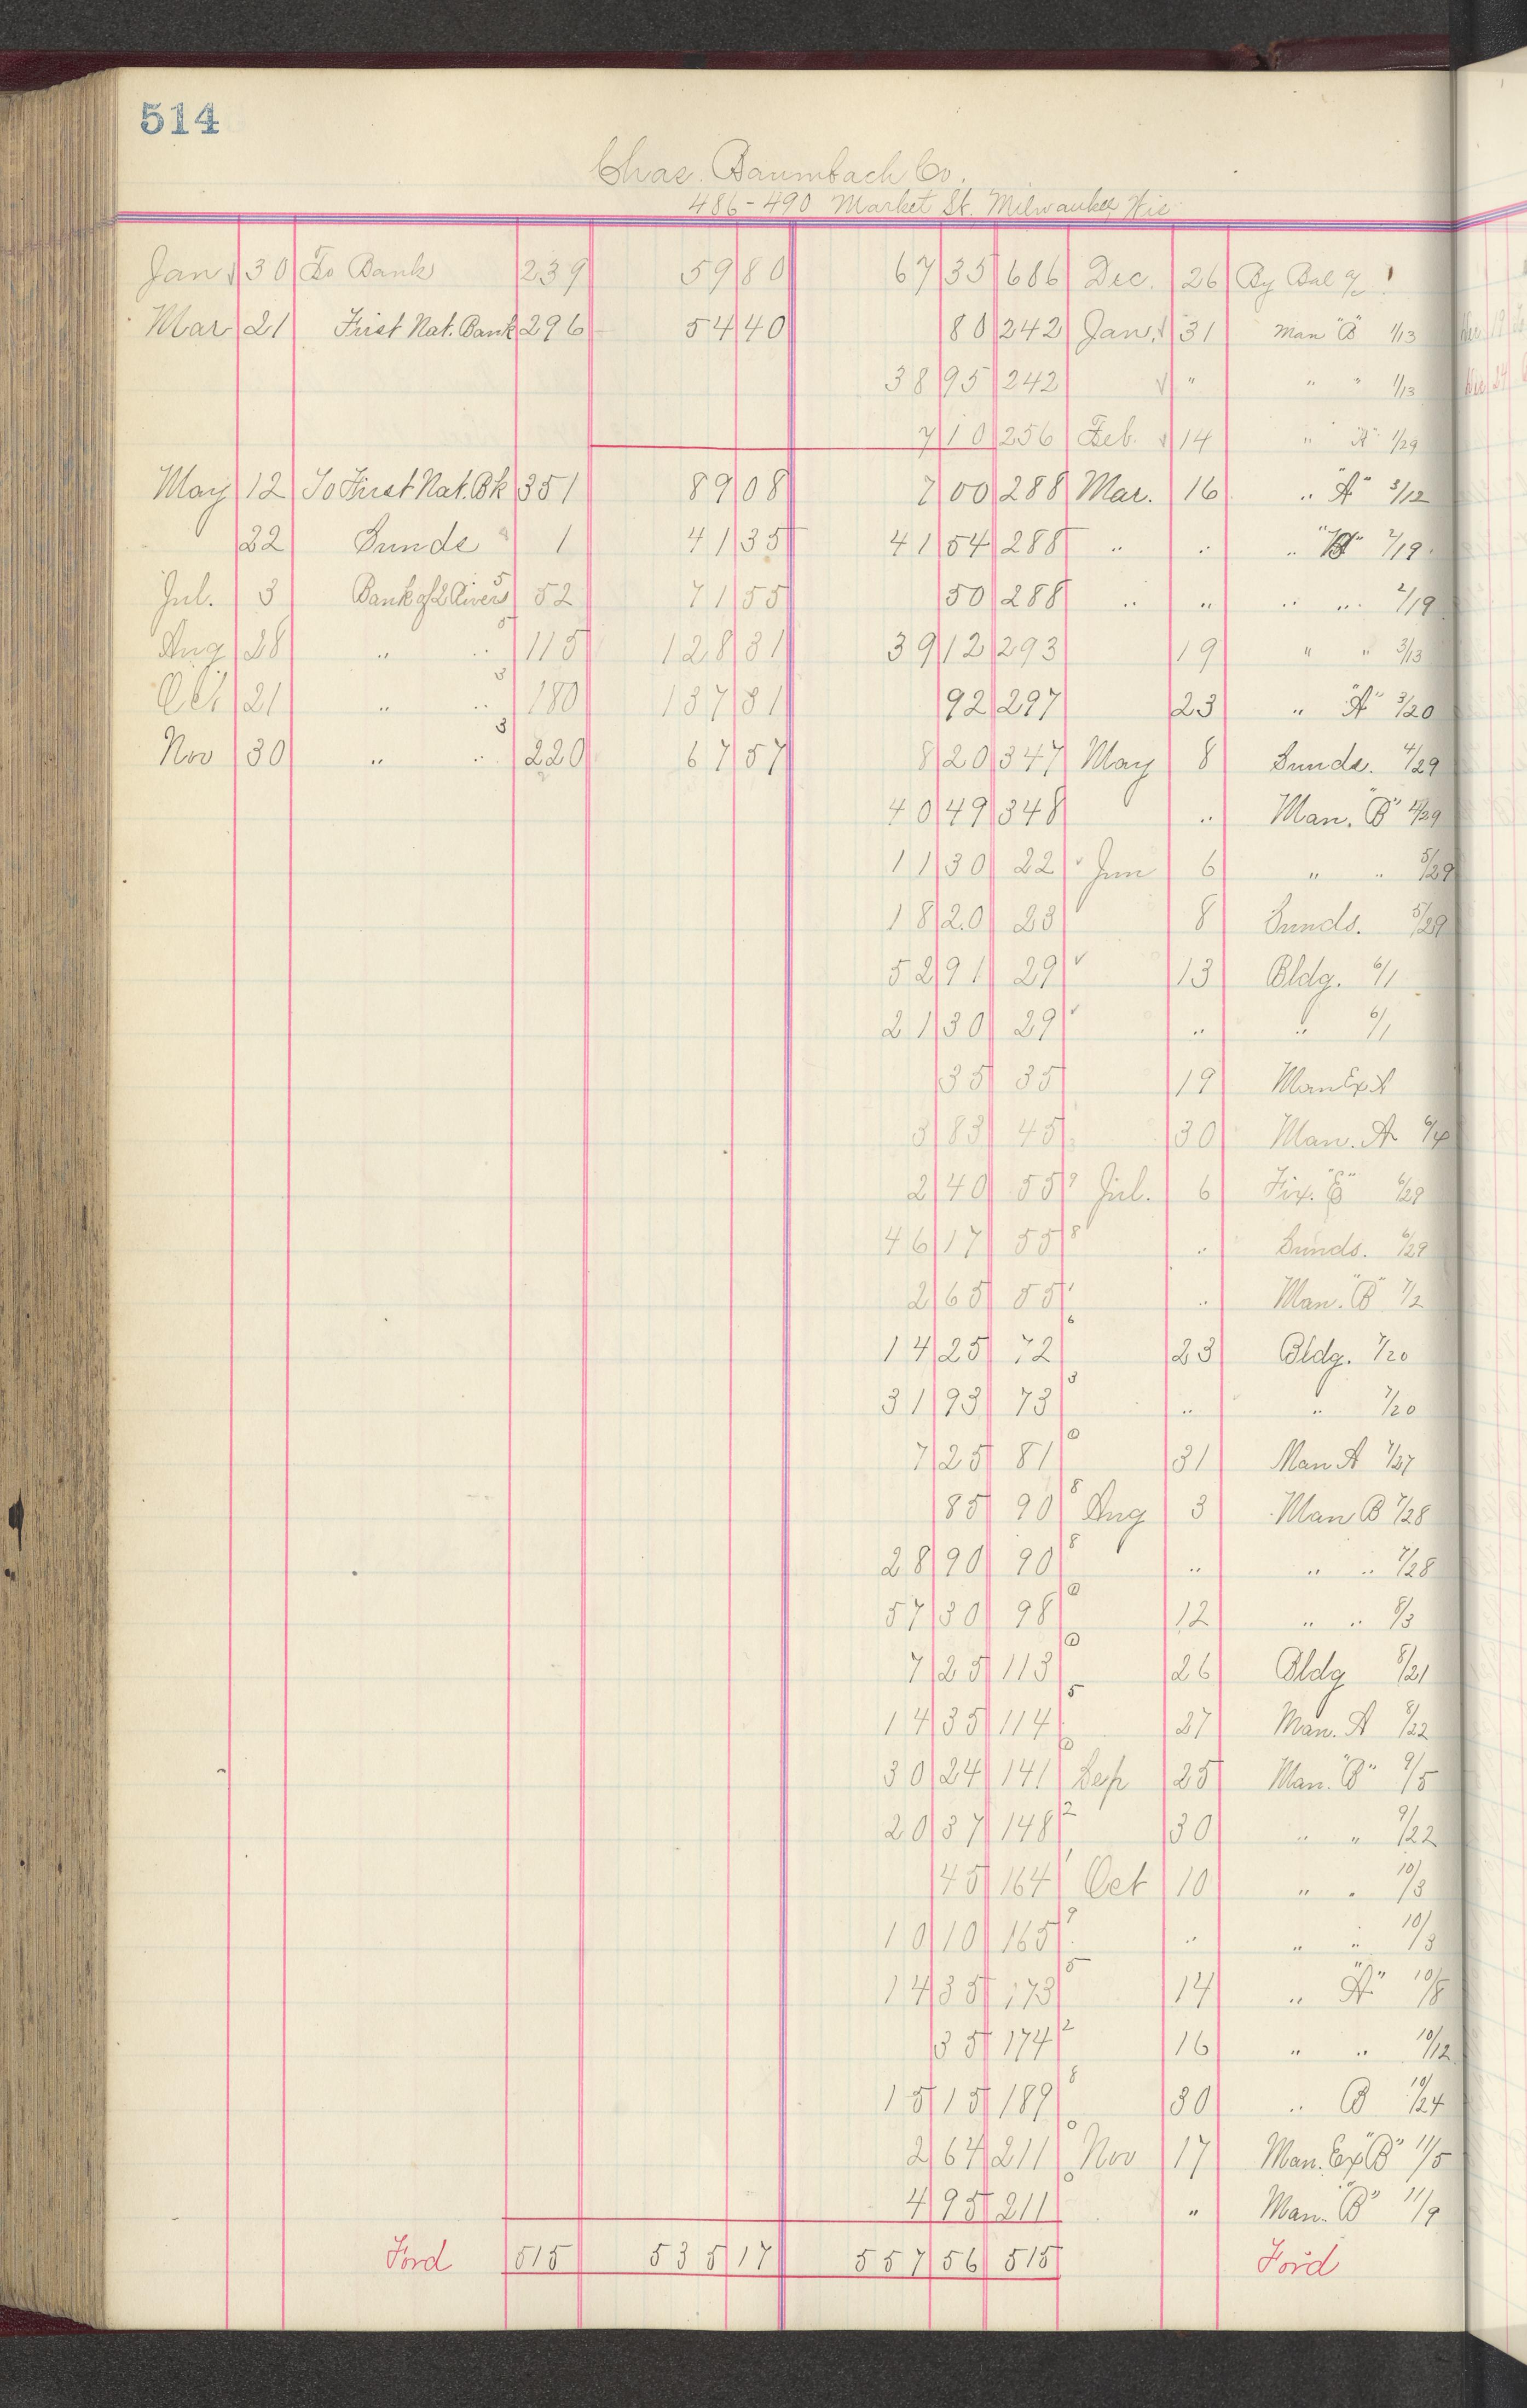 514
Chas. Baumbach Co.
486-490 Market St. Milwaukee Wis
Jan 30 To Bank 239 59 80 67 35 686 Dec. 26 By Bal
Mar 21 First Nat. Bank 296 54 40 80 242 Jan. 31 Man "B" 1/13
38 95 242 " " " 1/13
7 10 256 Feb. 14 " "A" 1/29
May 12 To First Nat. Bk 351 89 08 7 00 288 Mar. 16 " "A" 3/12
22 Sunds 1 41 35 41 54 288 " " " "B" 2/19
Jul. 3 Bank of 2 Rivers 52 71 55 50 288 " " " " 2/19
Aug 28 " " 115 128 31 39 12 293 19 " " 3/13
Oct 21 " " 180 137 81 92 297 23 " "A" 3/20
Nov 30 " " 220 67 57 8 20 347 May 8 Sunds. 4/29
40 49 348 " Man. "B" 4/29
11 30 22 Jun 6 " " 5/29
18 20 23 8 Sunds. 5/29
52 91 29 13 Bldg. 6/1
21 30 29 " " 6/1
35 35 19 Man Ex A
3 83 45 30 Man. A
2 40 55 Jul. 6 Fix. 6/29
46 17 55 " Sunds. 6/29
2 65 55 " Man. "B" 7/2
14 25 72 23 Bldg. 7/20
31 93 73 " " 7/20
7 25 81 31 Man A 7/27
85 90 Aug 3 Man B 7/28
28 90 90 " " " 7/28
57 30 98 12 " " 8/3
7 25 113 26 Bldg 8/21
14 35 114 27 Man. A 8/22
30 24 141 Sep 25 Man. "B" 9/5
20 37 148 30 " " 9/22
45 164 Oct 10 " " 10/3
10 10 165 " " " 10/3
14 35 173 14 " "A" 10/8
35 174 16 " " 10/12
15 15 189 30 " B 10/24
2 64 211 Nov 17 Man. Ex "B" 11/5
4 95 211 " Man. "B" 11/9
Ford 515 535 17 557 56 515 Ford